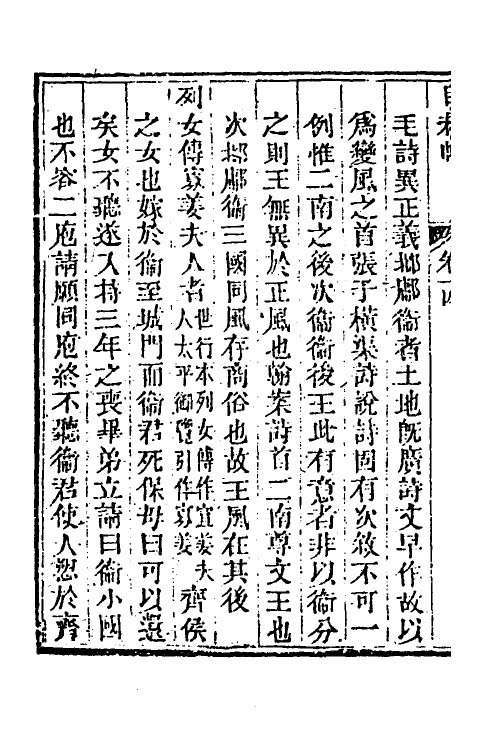 毛詩異正義邶鄘衛者土地旣廣詩文早作故以
爲變風之首張子橫渠詩說詩固有次敘不可一
例惟二南之後次衛衛後王此有意者非以衛分
之則王無異於正風也翰案詩首二南尊文王也
次邶鄘衛三國同風存商俗也故王風在其後
列女傳寡姜夫人者世行本列女傳作宣姜夫人太平御覽引作寡姜齊侯
之女也嫁於衛至城門而衛君死保母曰可以還
矣女不聽遂入持三年之喪畢弟立請曰衛小國
也不容二庖請願同庖終不聽衛君使人愬於齊